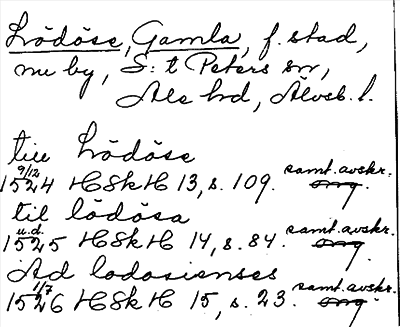 Lödöse, Gamla, f. stad,
nu by, S:t Peters sn,
Ale hd, Älvsb. l.
till Lödöse
9/12
1524 HSkH 13, s. 109. samt. avskr. orig
til lödösa
u.d.
1525 HSkH 14, s. 84. samt. avskr. orig
Ad lodosienses
1/7
1526 HSkH 15, s. 23. samt. avskr. orig